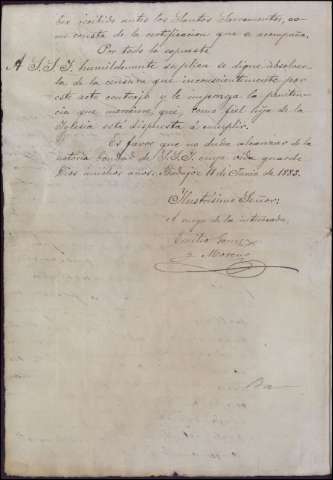 ber recibido antes los Santos Sacramentos, co-
mo consta de la certificacion que se acompaña.
Por todo lo expuesto
A S.S.I. humildemente suplica se digne absolver-
la de la censura que inconscientemente por
este acto contrajo y le imponga la peniten-
cia que merezca, que, como fiel hija de la
Iglesia está dispuesta á cumplir.
Es favor que no duda alcanzar de la
notoria bondad de S.S.I. cuya vida guarde
Dios muchos años. Badajoz 18 de Junio de 1883.
Ilustrísimo Señor:
á ruego de la interesada,
Emilio
y Moreno